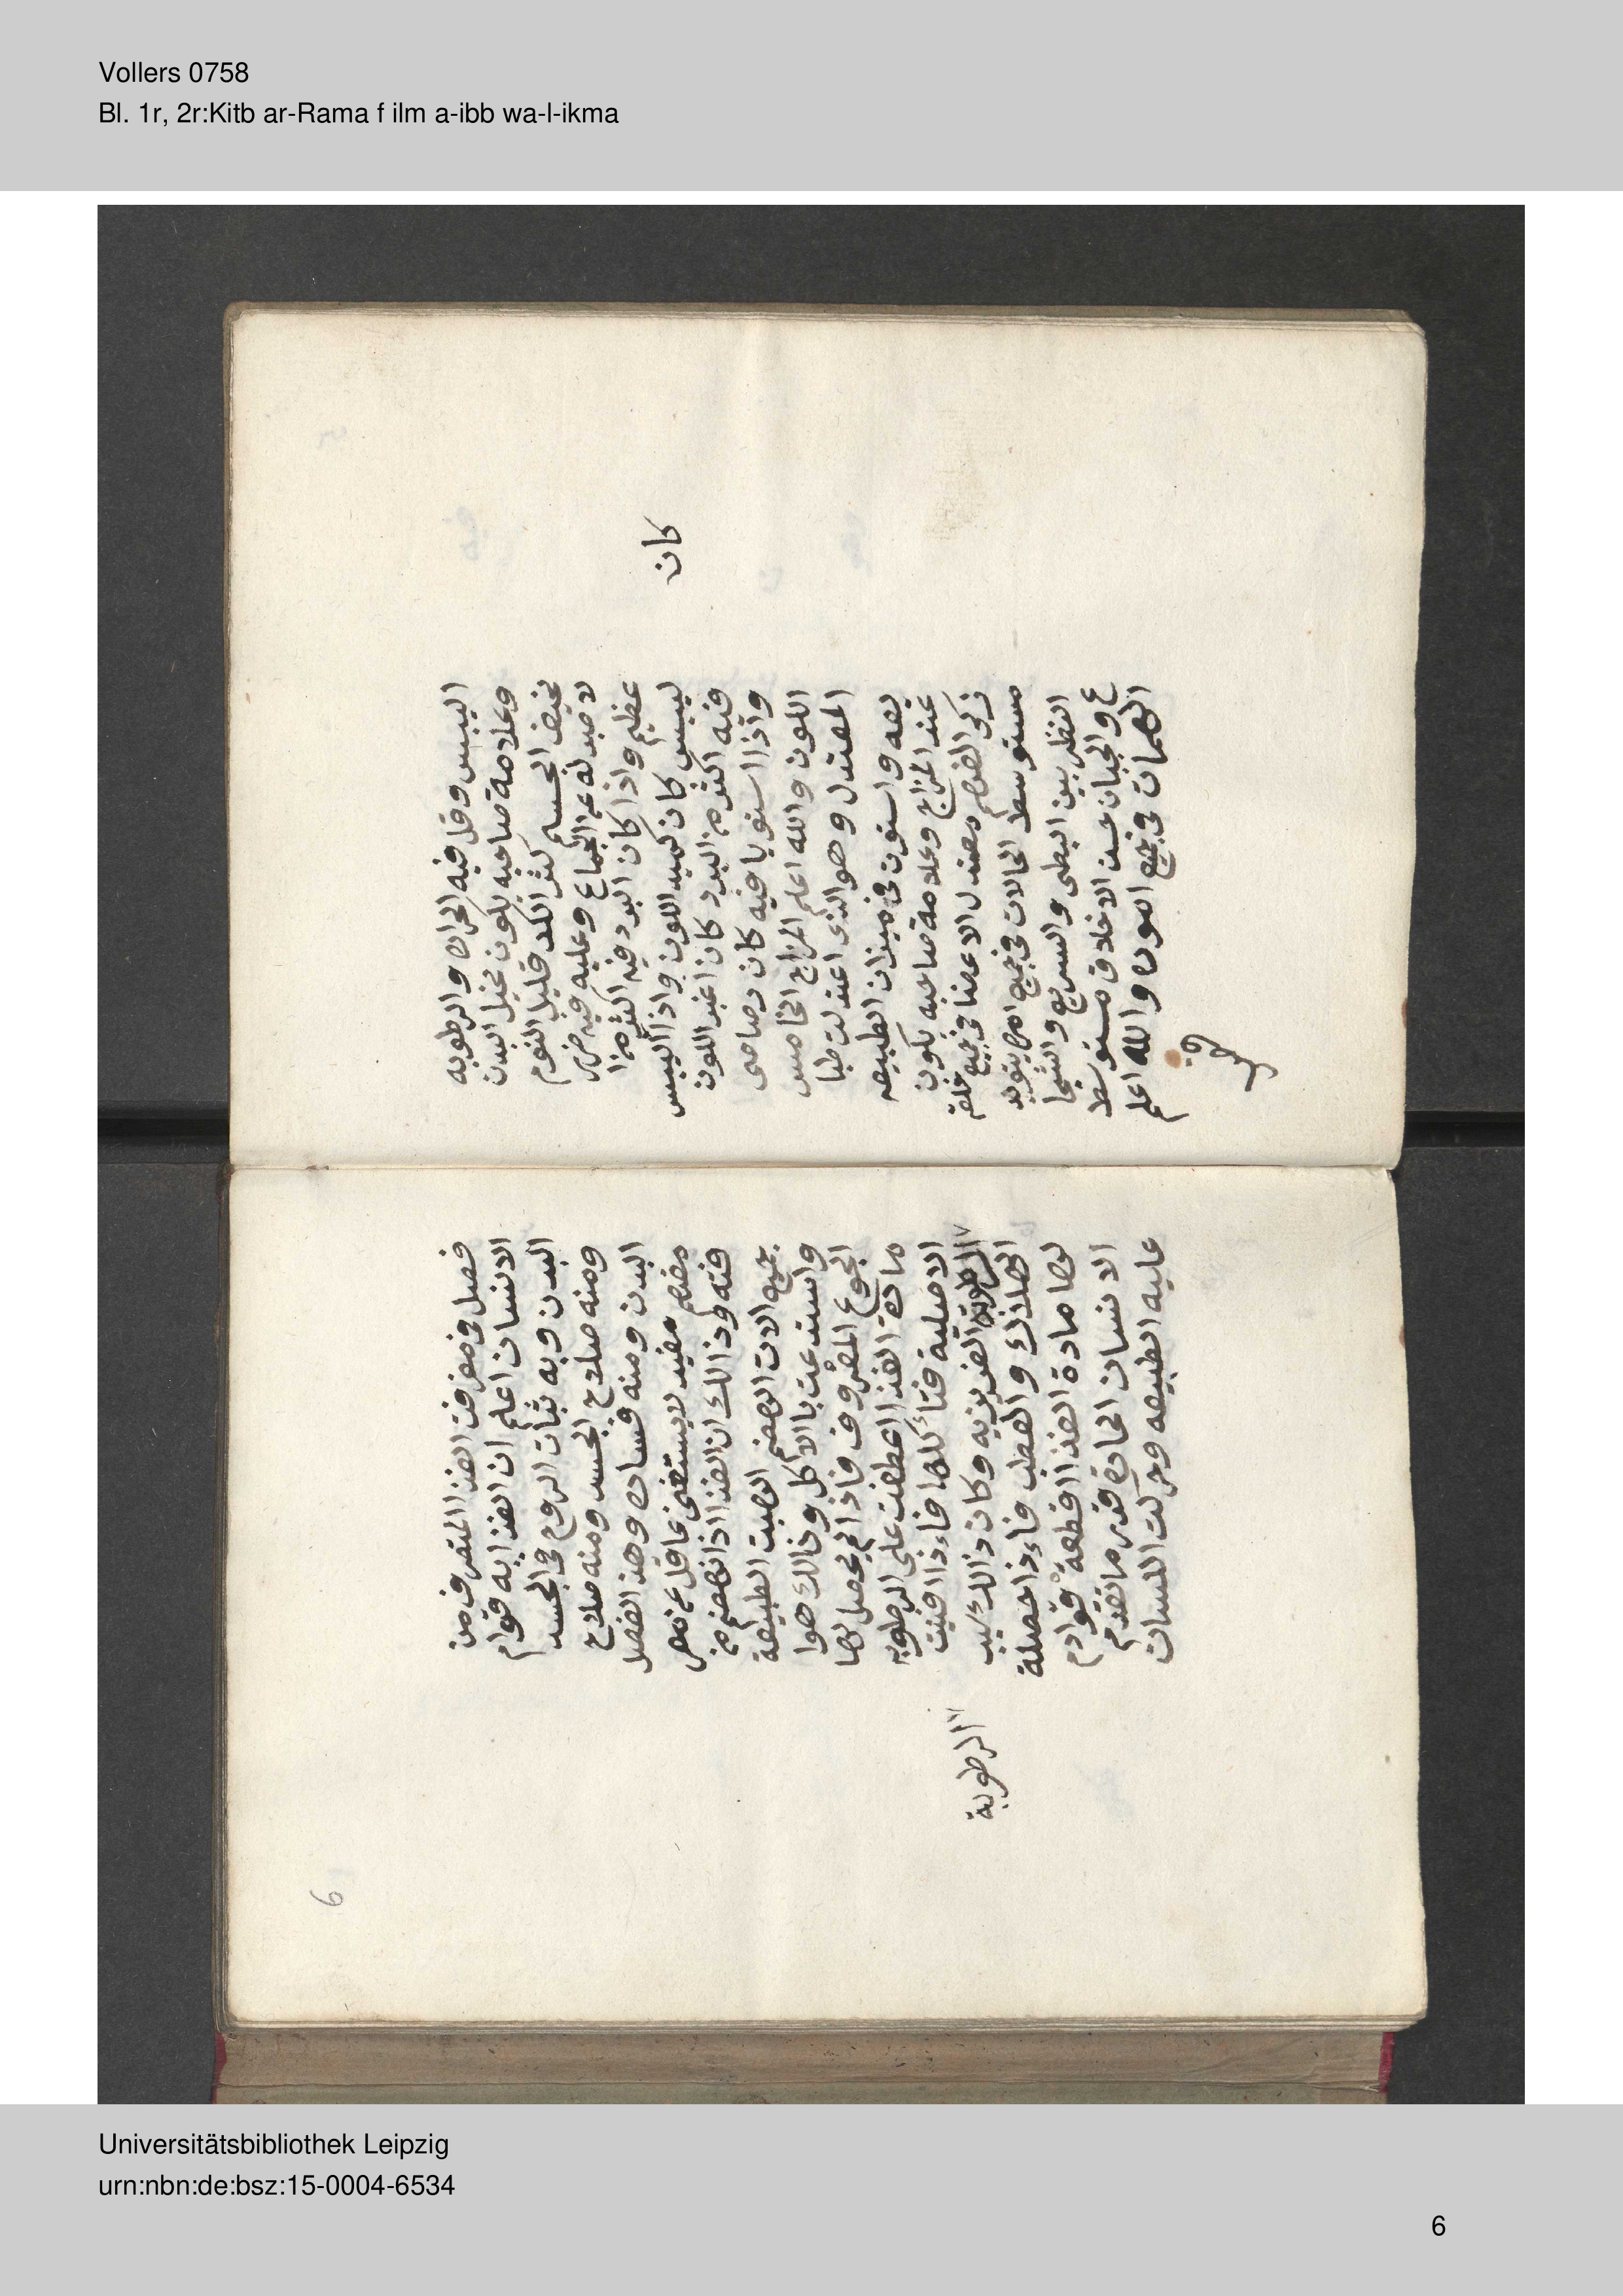 Vollers 0758
Bl. 1r, 2r:Kitb ar-Rama f ilm a-ibb wa-l-ikma
اليبس وقل فيه الحراره والرطوبه
وعلامة صاحبه يكون نحيل البدن
نحيف الجسم كثر الكد قليل النوم
لا صبر له عن الجماع وعليه فيه ضرر
عظيم واذا كان البرد فيه اكثر من ا
ليبس كان كميد اللون واذا اليبس
كان
فيه اكثر من البرد كان اغبر اللون
واذا استويا فيه كان رصاصى
اللون والله اعلم المزاج الخامس
المعتدل وهو الذى اعتدلت طبا
يعه واستوت فى ميزان الطبيعه
عند المزاج وعلامة صاحبه يكون
زكى الفهم معتدل الاعضا فى جميع خلقه
مستوسط الحالات فى جميع اموره بتويد
النظر بين البطى والسريع والشجا
ع والجبان حسن الاخلاق مستوسط
الهمات فى جميع امورہ والله اعلم
فصل فى معرفت الغذا المتعرف من
الانسان اعلم ان الغذا به قوام
البدن وبه ثبات الروح فى الجسد
ومنه صلاح الجسد ومنه صلاح
البدن ومنه فساده وهذ الفصل
مفهم مفيد لا يستغنى عاقل عن معر
فته وذالك ان الغذا اذا نهضم من
جميع الات الهضم الهبت الطبيعة
واستدعت بالاكل وذالك هوا
الجوع المعروف فاذا لم يحصل لها
مادة الغذا اعطفت على الرطوبه
الاصلية فتأكلها فاءذا فنيت
الغريزيه وكان ذالك سبب
الرطوبة
الهلاك والعطب فاءذا حصلة
لها مادة الغذا قطعة قوادم
الانسان الحادة قدر ما تقدم
عليه الطبيعه وحركت اللسان
6
Universitätsbibliothek Leipzig
urn:nbn:de:bsz:15-0004-6534
6